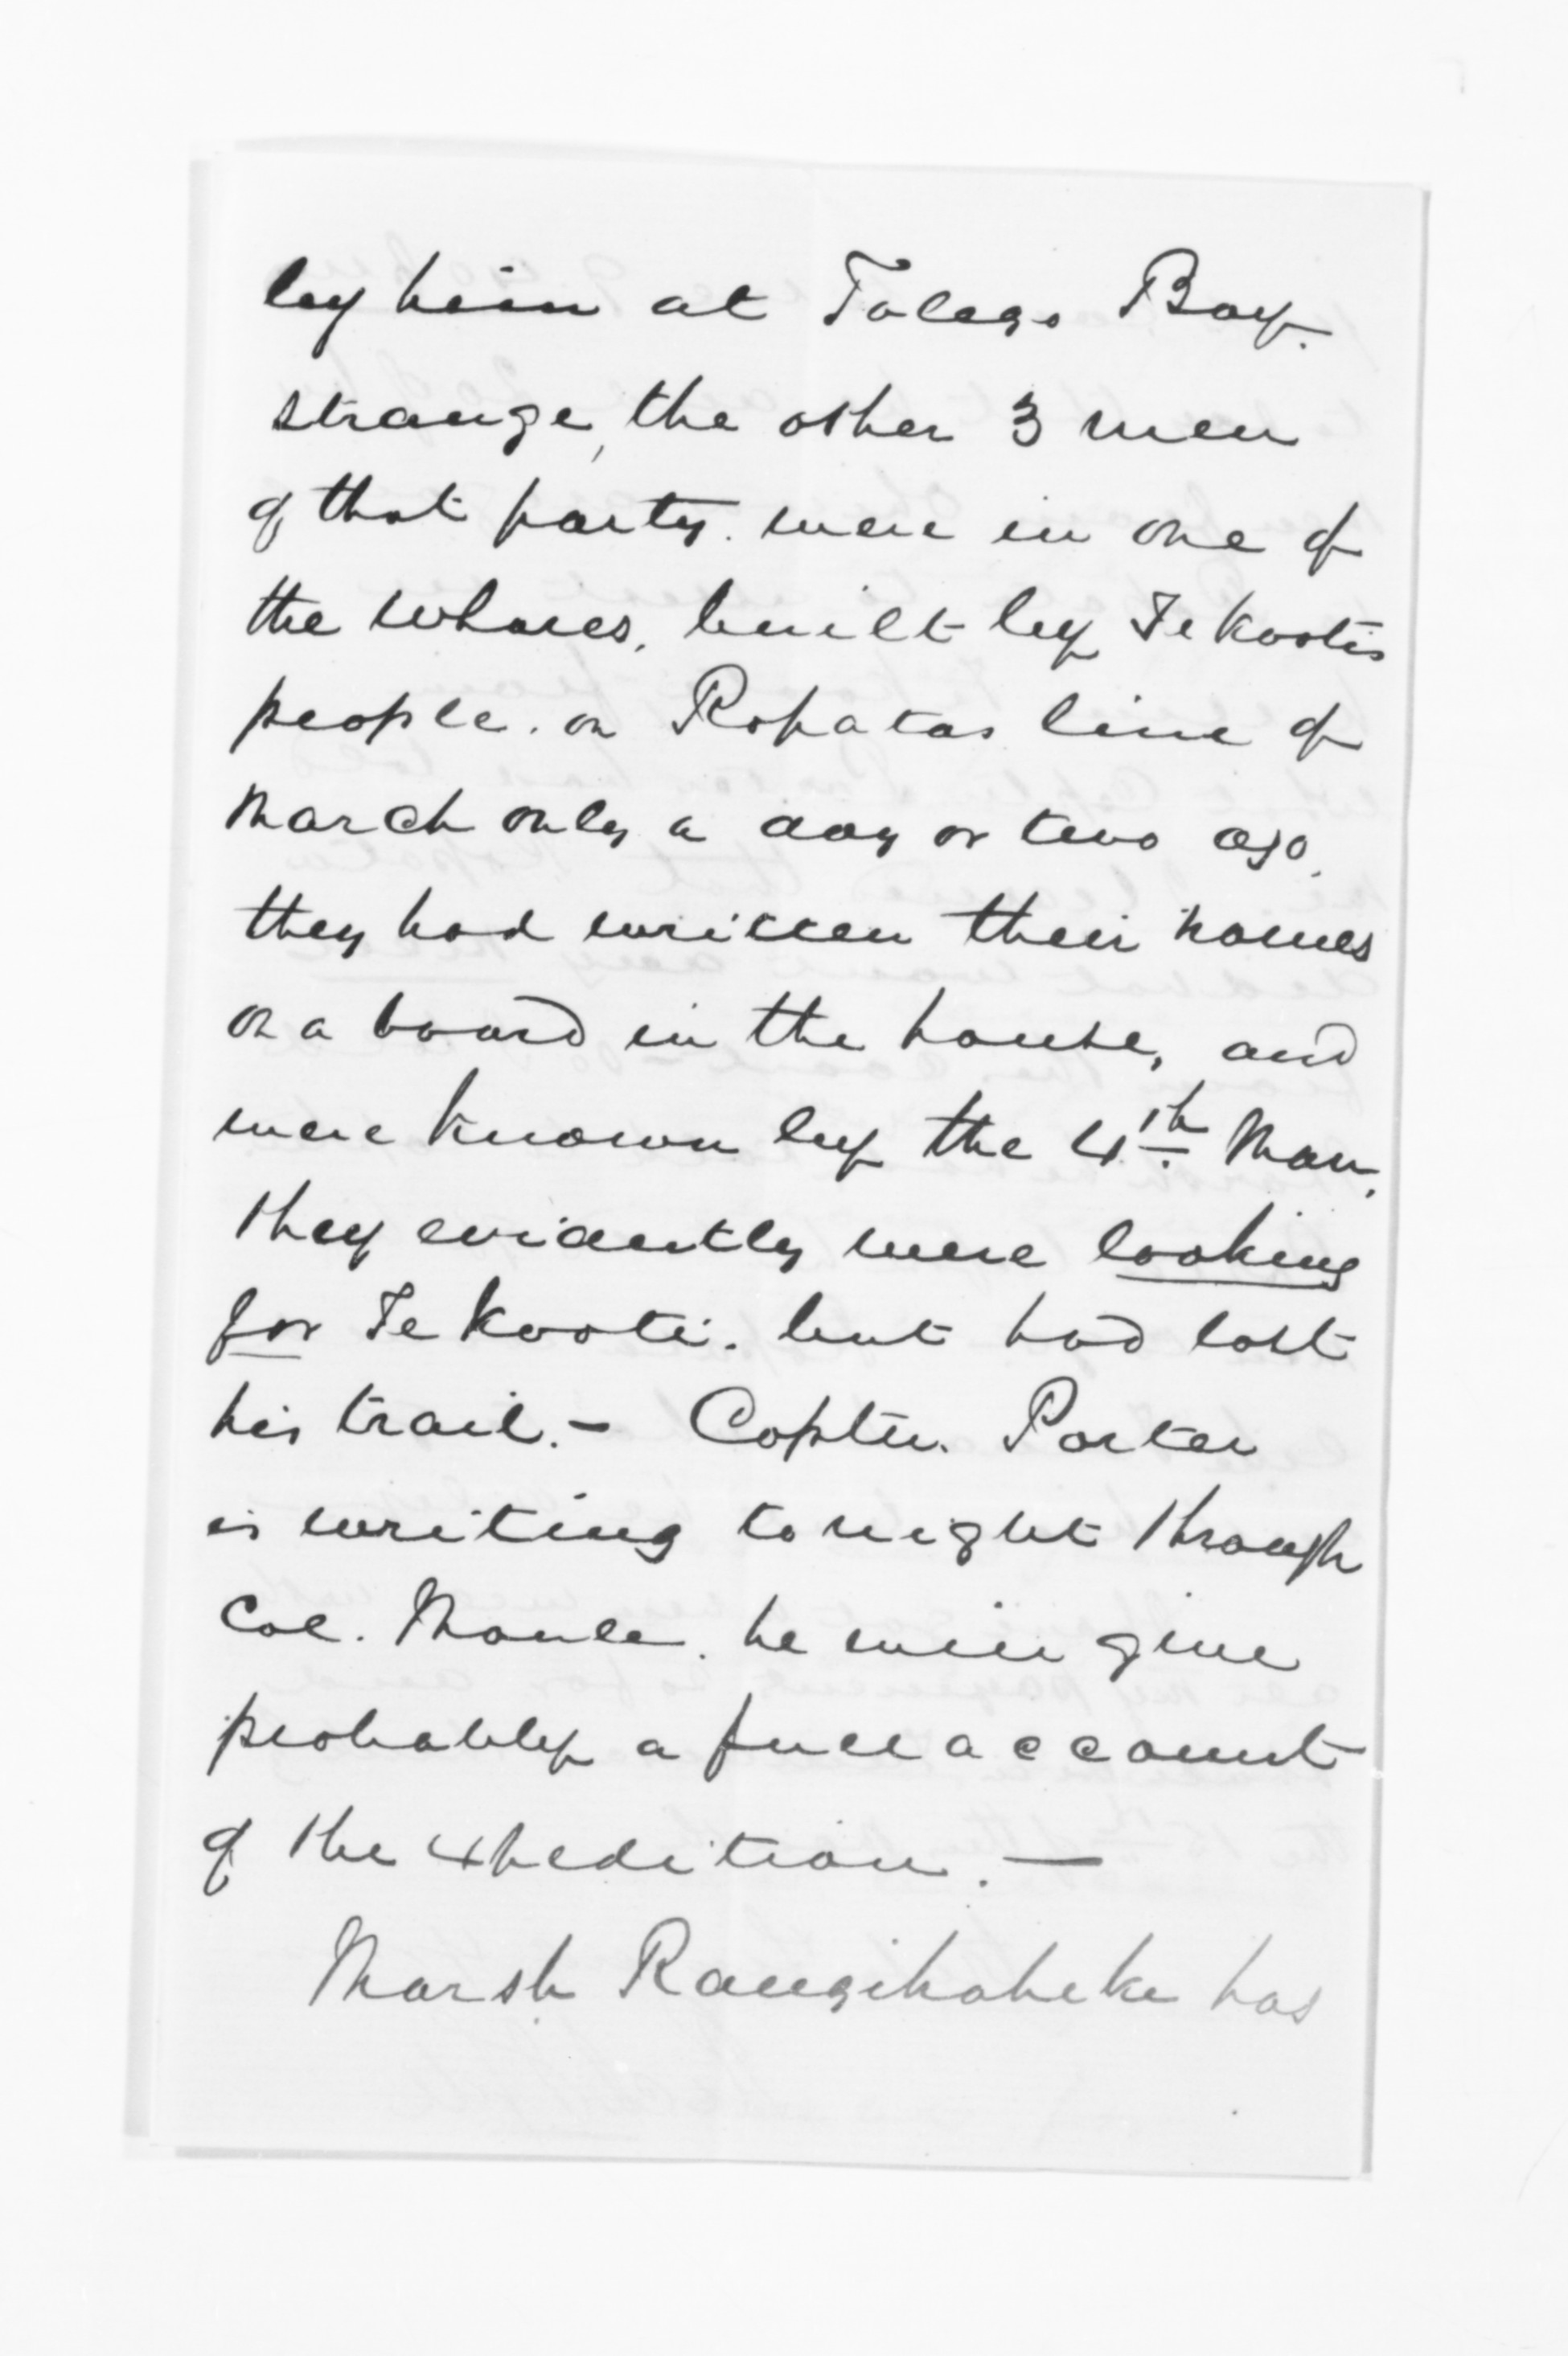 by him at Tolago Bay.
strange, the other 3 men
of that party. were in one of
the whares, built by Te Kootis
people. on Ropatas line of
March only a day or two ago.
they had written their names
on a board in the house, and
were known by the 4th. Man.
they evidently were looking
for Te Kooti. but had lost
his trail. - Captn. Porter
is writing to night through
Col. Moule. he will give
probably a full account
of the expedition. —
Marsh Rangikaheke has